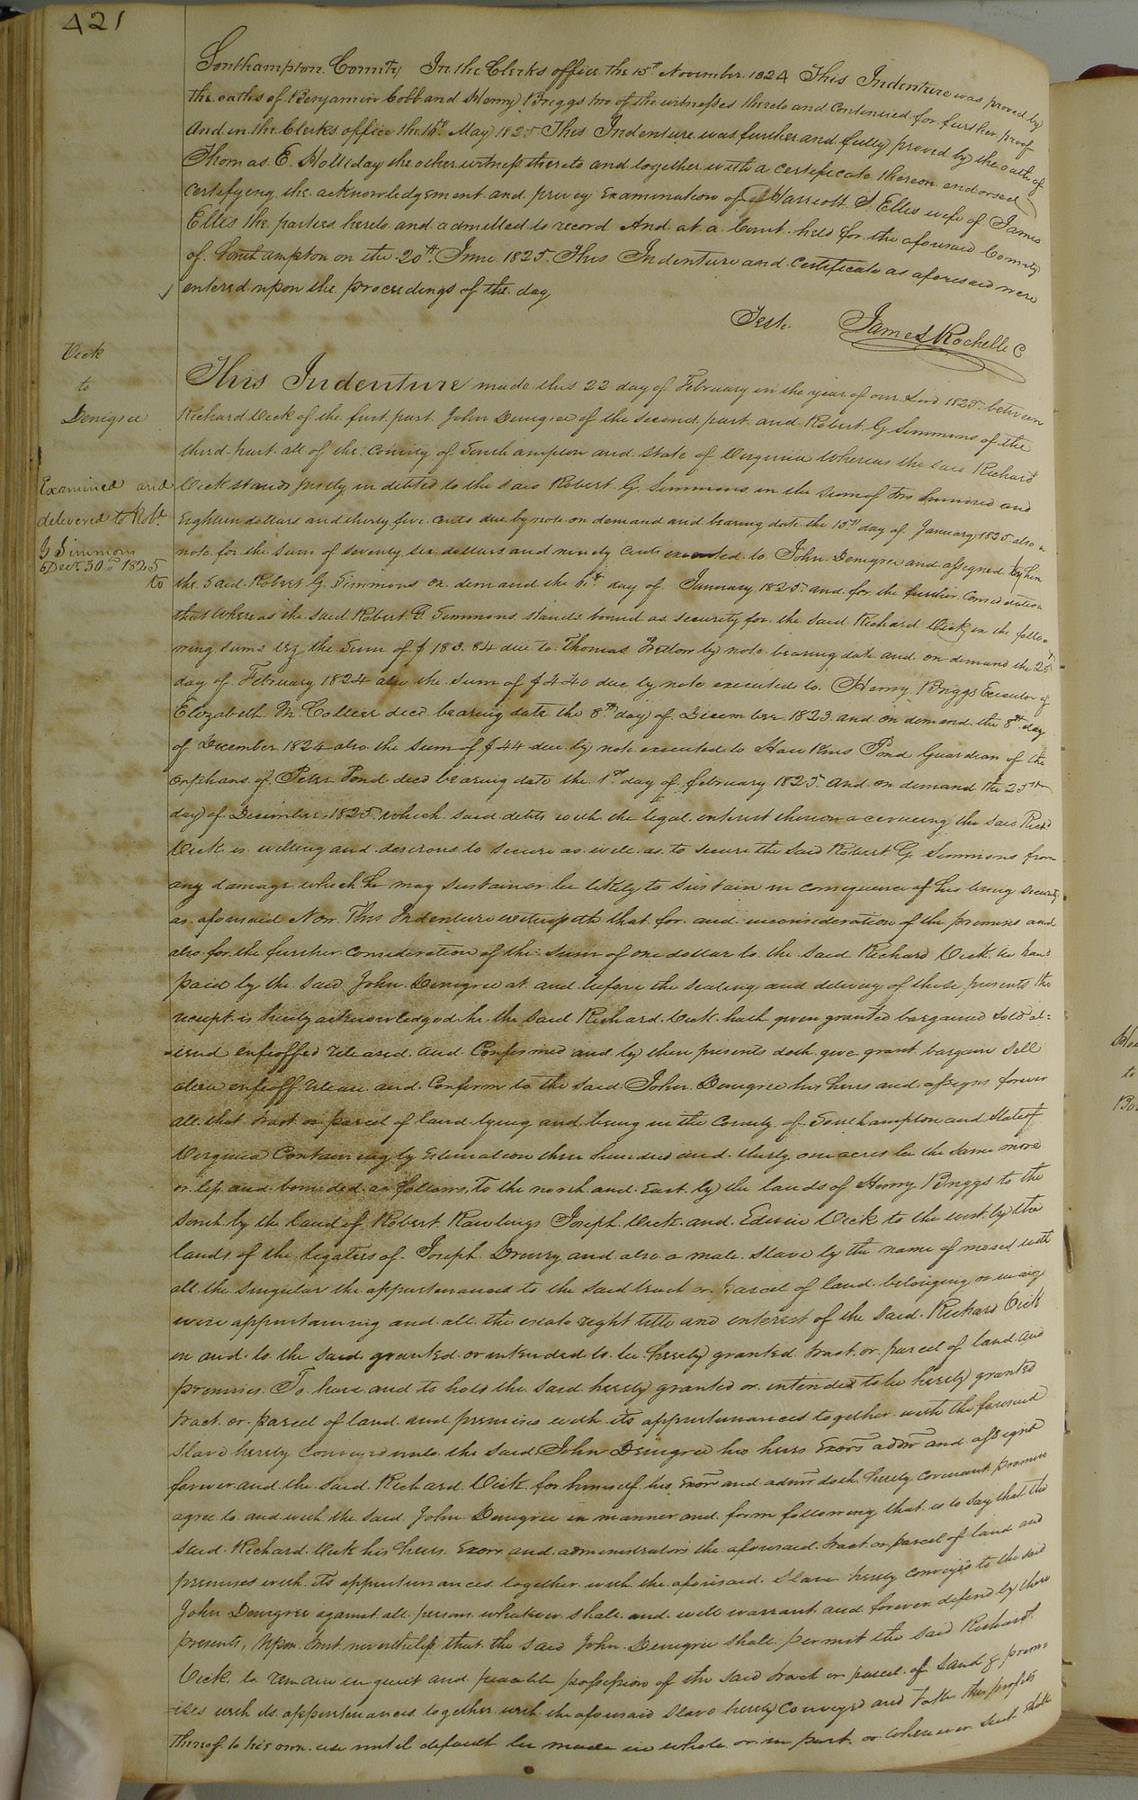 421
Southampton County In the Clerks office the 15th November 1824 This Indenture was proved by
the oaths of Benjamin Cobb and Henry Briggs two of the witnesses thereto and Continued for further proof
And in the Clerks office the 16th May 1825 This Indenture was further and fully proved by the oath of
Thomas E. Holliday the other witness thereto and together with a certificate thereon endorsed
certifying the acknowledgement and privey Examination of Harriott S Ellis wife of James
Ellis the parties hereto and admitted to record And at a Court held for the aforesaid County
of Southampton on the 20th June 1825. This Indenture and Certificate as aforesaid were
entered upon the proceedings of the day
Test. James Rochelle C
Vick
to
Denegree
Examined and
delivered to Robt
G Simmons
Decr. 30th 1825
This Indenture made this 22 day of February in the year of our Lord 1825 between
Richard Vick of the first part John Denegree of the second part and Robert G Simmons of the
third part all of the County of Southampton and State of Virginia Whereas the said Richard
Vick stands justly indebted to the said Robert G. Simmons in the sum of two hundred and
Eighteen dollars and thirty five cents due by note on demand and bearing date the 15th day of January 1825 also a
note for the sum of seventy six dollars and ninety cents executed to John Denegree and assigned by him
to the said Robert G. Simmons on demand the day of January 1825 and for the further Consideration
that whereas the said Robert G. Simmons stands bound as security for the said Richard Vick in the follo=
wing sums viz the Sum of $183.84 due to Thomas Fretlow by note bearing date and on demand the 25th
day of February 1824 also the sum of $440 due by note executed to Henry Briggs Executor of
Elizabeth M Collier decd bearing date the 8th day of December 1823 and on demand the 8th day
of December 1824 also the sum of $44 due by note executed to Hawkins Pond Guardian of the
orphans of Peter Pond decd bearing date the 1st day of february 1825 and on demand the 25th
day of December 1825 which said debts with the legal interest thereon accrueing the said Richd
Vick is willing and desirous to secure as well as to secure the said Robert G Simmons from
any damage which he may sustain or be likely to sustain in consequence of his being security
as aforesaid Now This Indenture witnesseth that for and in consideration of the premises and
also for the further consideration of the sum of one dollar to the said Richard Vick in hand
paid by the said John Denegree at and before the sealing and delivery of these presents the
receipt is hereby acknowledged he the said Richard Vick hath given granted bargained sold al=
iened enfeoffed released and Confirmed and by these presents doth give grant bargain sell
alien enfeoff release and Confirm to the said John Denegree his heirs and assigns forever
all that tract or parcel of land lying and being in the County of Southampton and State of
Virginia Containing by Estimation three hundred and thirty one acres be the same more
or less and bounded as follows, To the north and East by the lands of Henry Briggs to the
South by the land of Robert Rawlings Joseph Vick and Edwin Vick to the west by the
lands of the legatees of Joseph Drewry and also a male slave by the name of mosed with
all the singular the appurtenances to the said tract or parcel of land belonging or in any
wise appertaining and all the estate right title and interest of the said Richard Vick
in and to the said granted or intended to be hereby granted tract or parcel of land and
premises To have and to hold the said hereby granted or intended to be hereby granted
tract or parcel of land and premises with its appurtenances together with the foresaid
slave hereby conveyed unto the said John Denegree his heirs Exors admr and assigns
forever and the said Richard Vick for himself his Exor and admr doth hereby covenant promise
agree to and with the said John Denegree in manner and form following that is to say that the
said Richard Vick his heirs Exors and administrators the aforesaid tract or parcel of land and
premises with its appurtenances together with the aforesaid Slave hereby conveyed to the said
John Denegree against all persons whatever shall and will warrant and forever defend by these
presents, Upon trust nevertheless that the said John Denegree shall permit the said Richard
Vick to remain in quiet and peaceable possession of the said tract or parcel of Land & prem=
ises with its appurtenances together with the aforesaid slave hereby Conveyed and take the profits
thereof to his own use until default be made in whole or in part or whenever sent shall
to